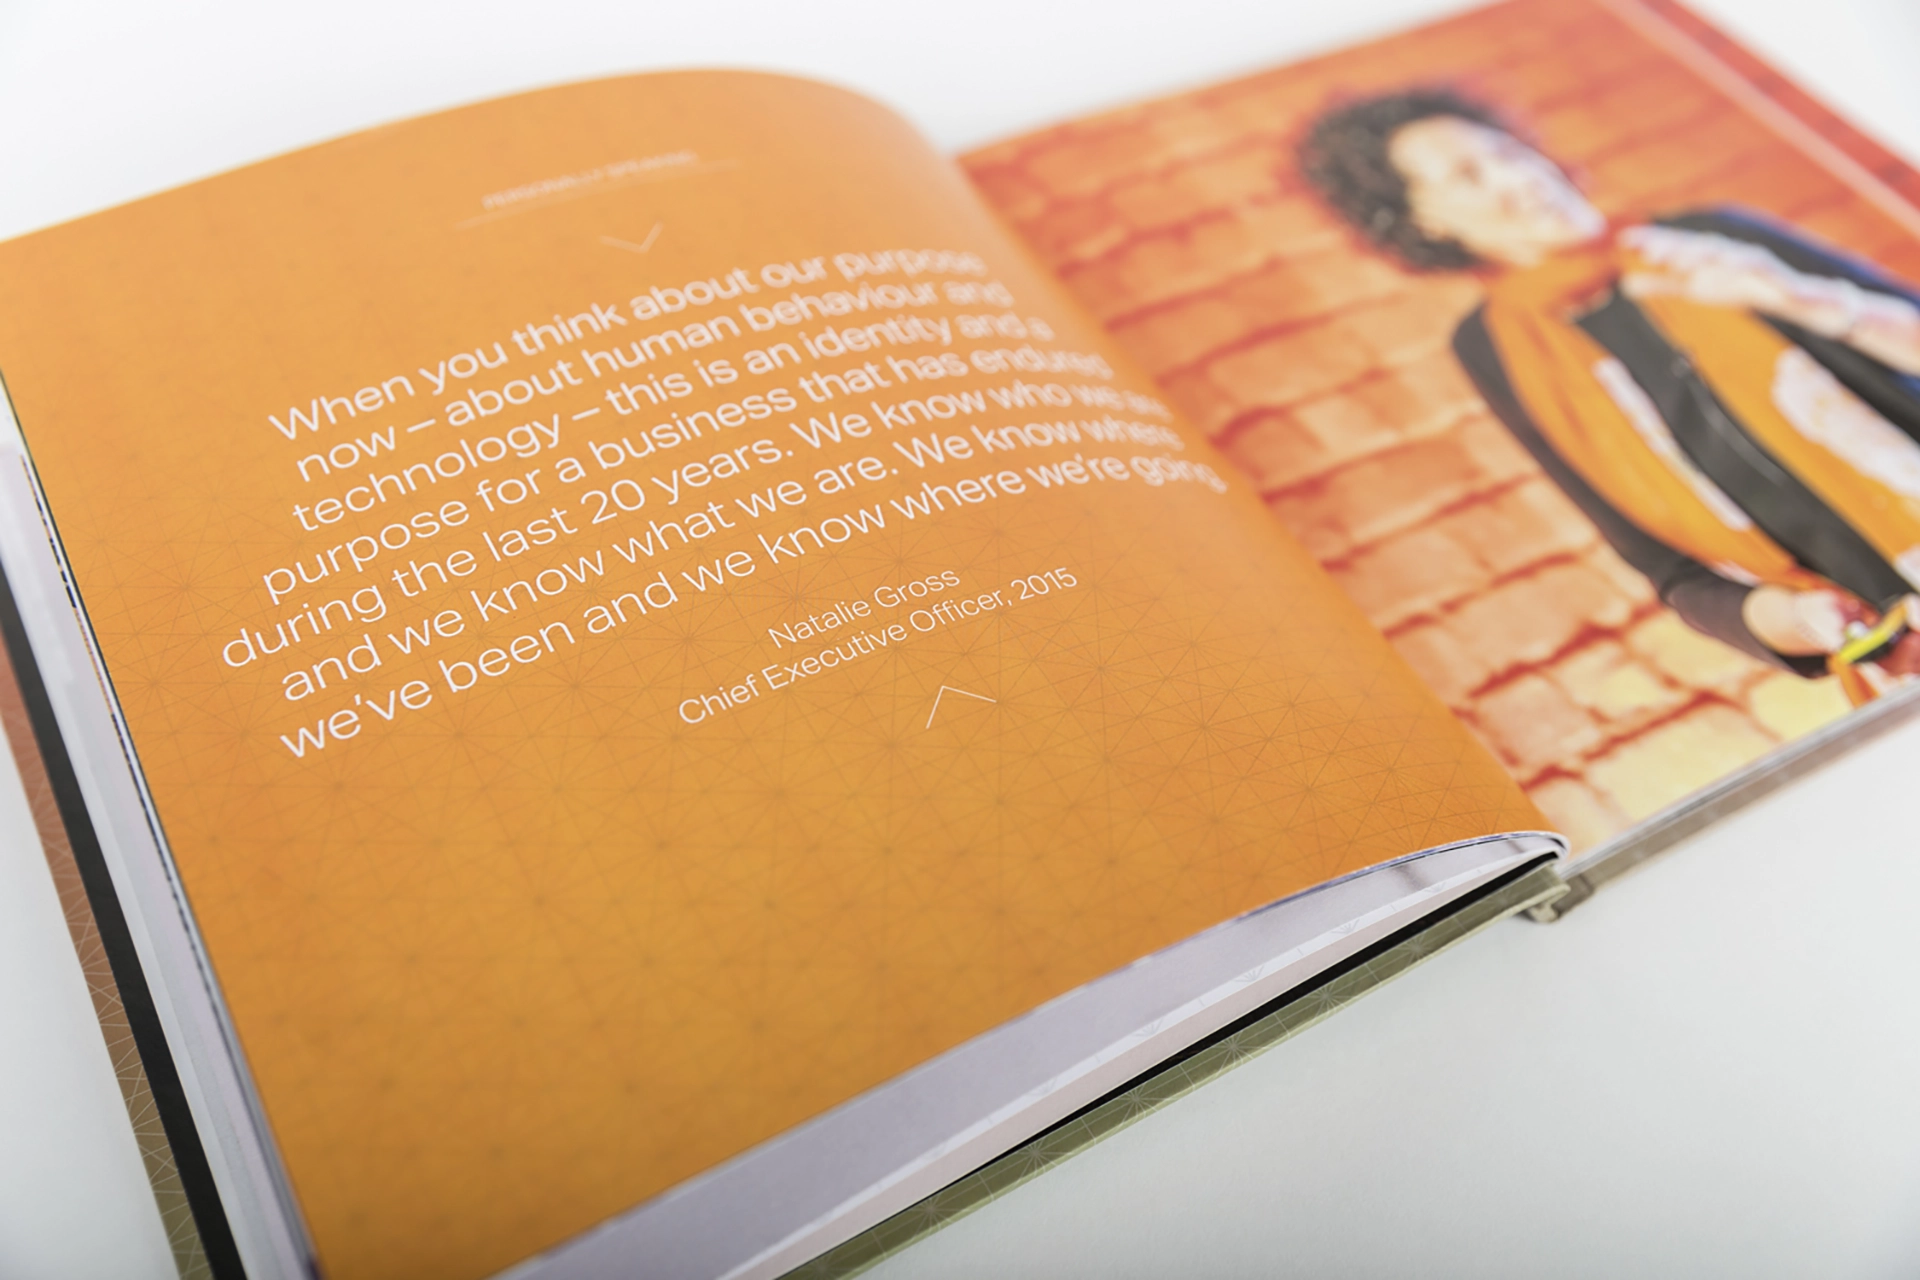 PERSONALLY SPEAKING
When you think about our purpose
now – about human behaviour and
technology – this is an identity and a
purpose for a business that has endured
during the last 20 years. We know who we are
and we know what we are. We know where
we've been and we know where we're going.
Natalie Gross
Chief Executive Officer, 2015